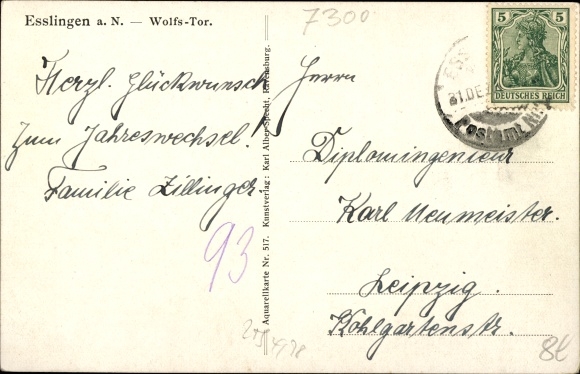 Esslingen a. N. — Wolfs-Tor.
7300
5 5
DEUTSCHES REICH
ESS
31.DEZ
Postamt Nr.
Herzl. Glückwunsch
Zum Jahreswechsel!
Familie Zillinger
93
Aquarellkarte Nr. 517. Kunstverlag: Karl Albert Specht, Ravensburg.
Herrn
Diplomingenieur
Karl Neumeister.
Leipzig.
Kohlgartenstr.
8t